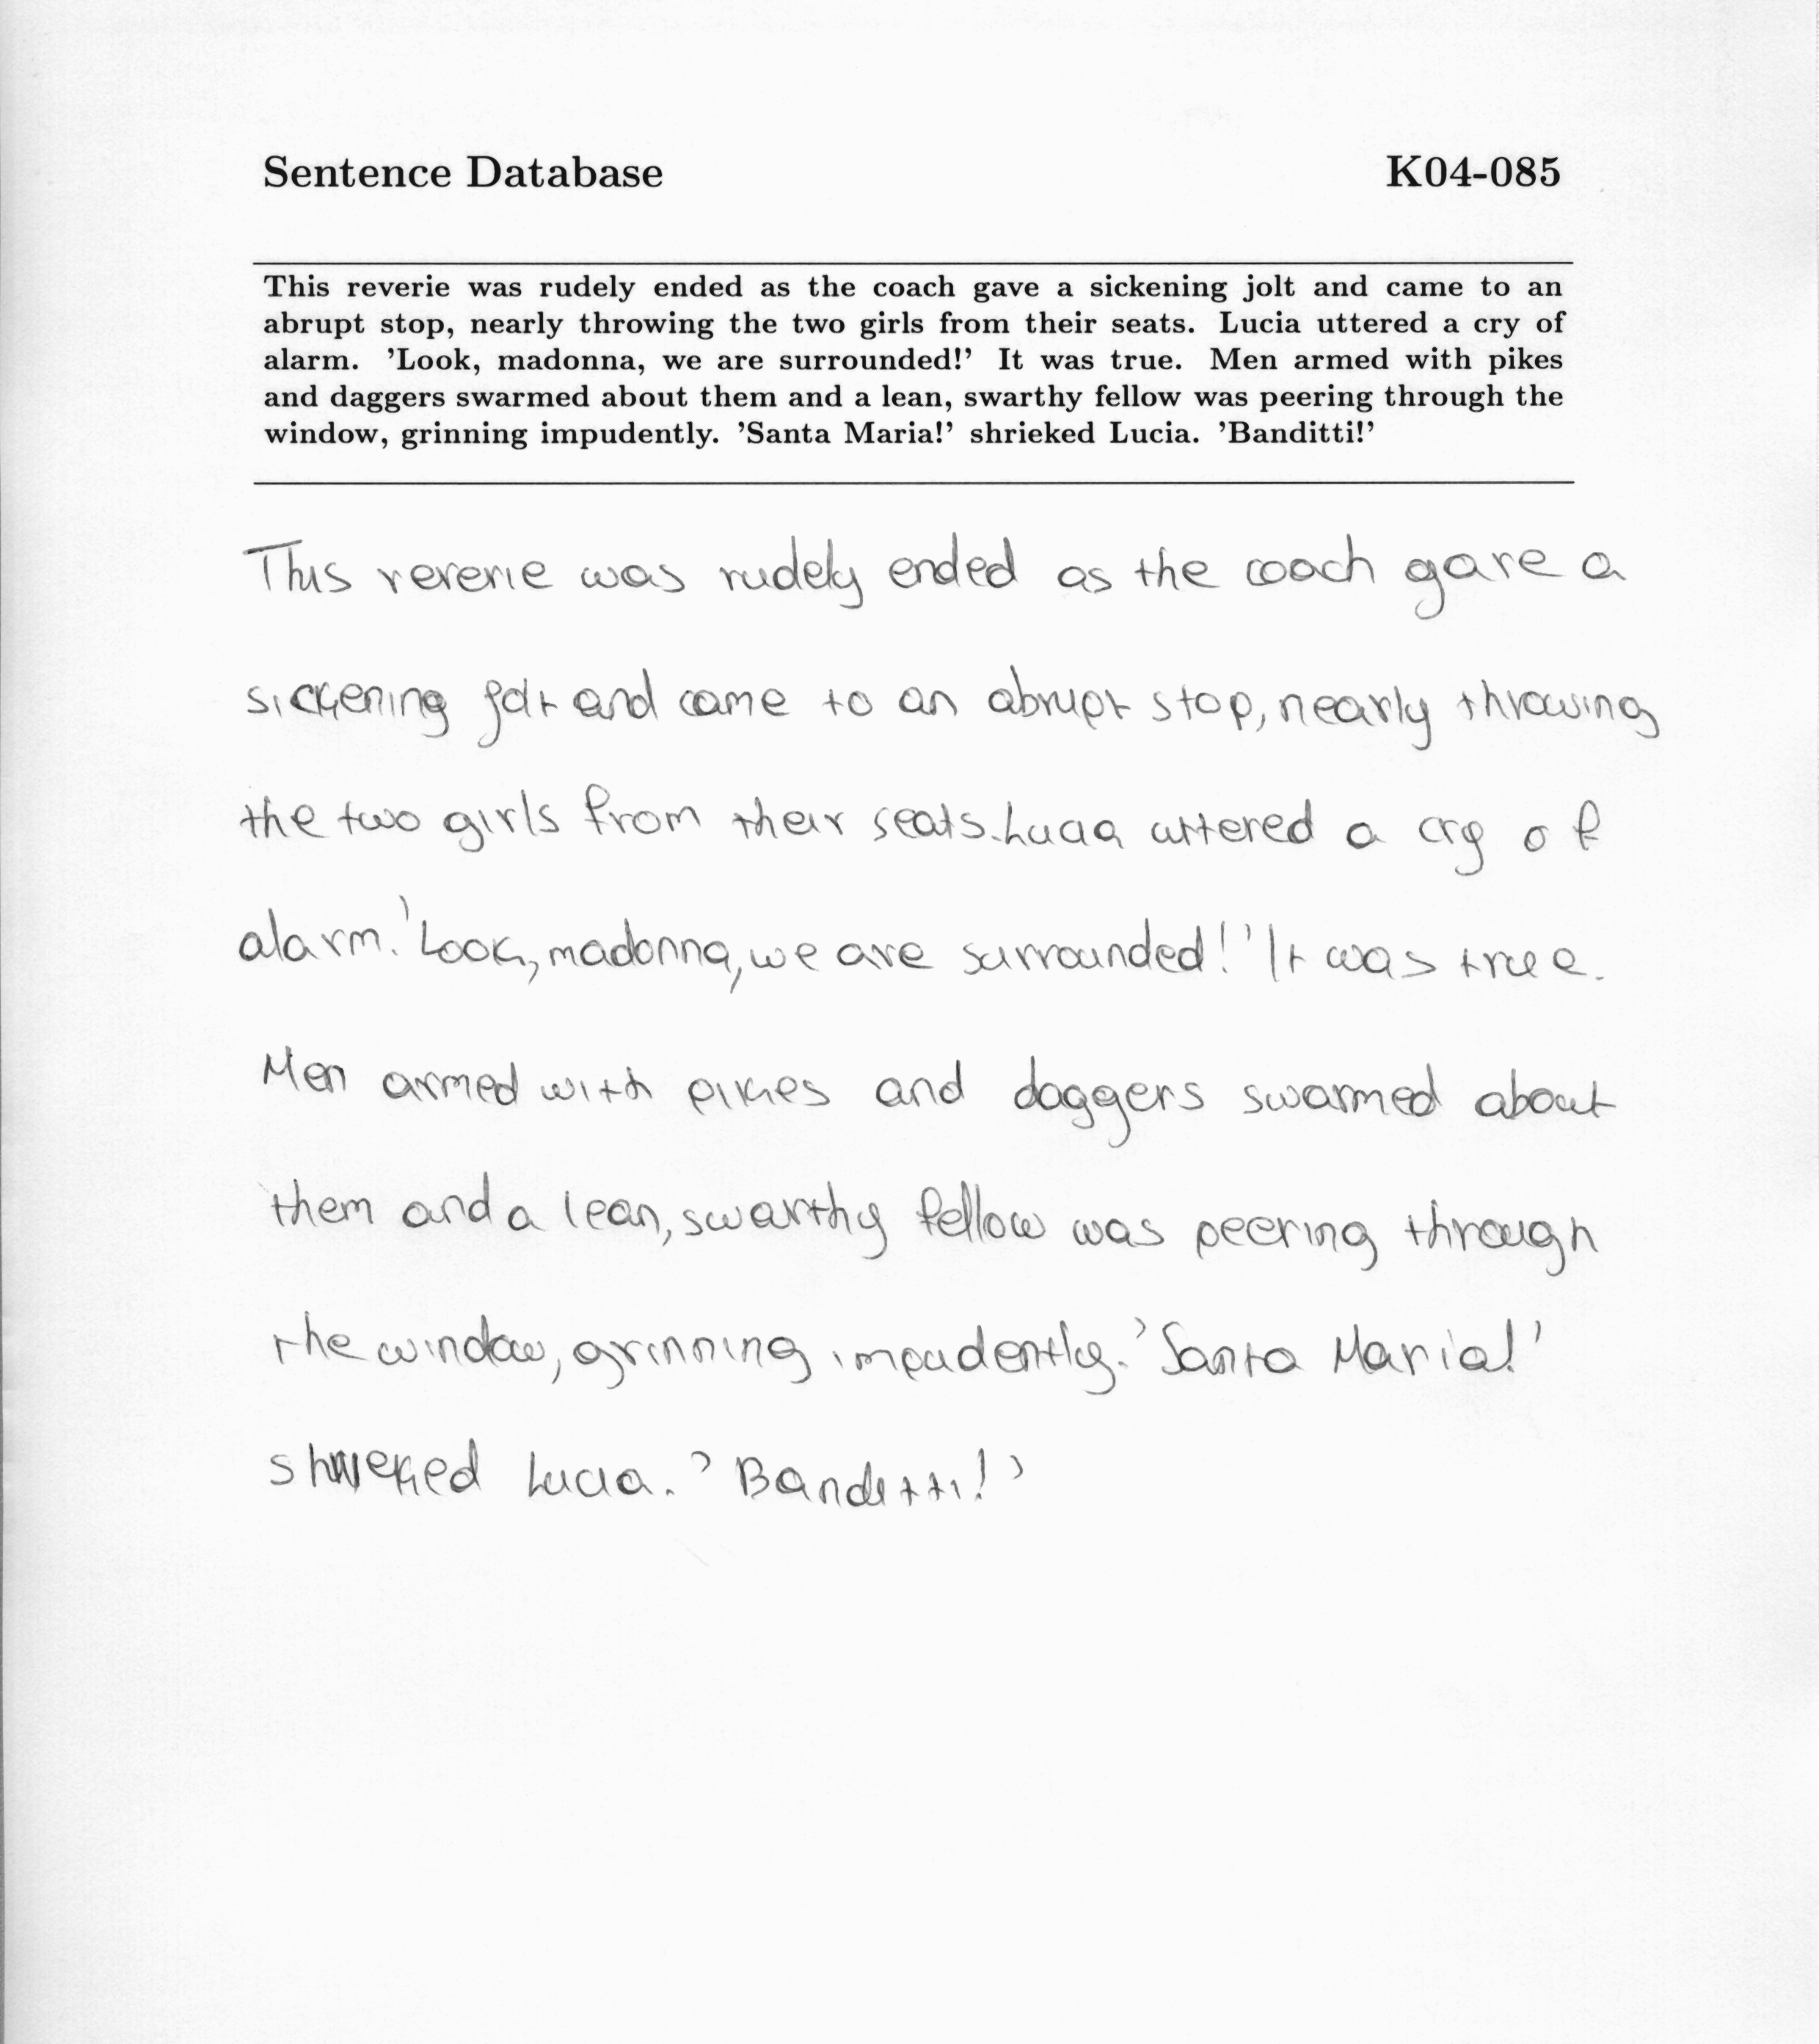 Sentence Database K04-085
This reverie was rudely ended as the coach gave a sickening jolt and came to an
abrupt stop, nearly throwing the two girls from their seats. Lucia uttered a cry of
alarm. 'Look, madonna, we are surrounded!' It was true. Men armed with pikes
and daggers swarmed about them and a lean, swarthy fellow was peering through the
window, grinning impudently. 'Santa Maria!' shrieked Lucia. 'Banditti!'
This reverie was rudely ended as the coach gave a
sickening jolt and came to an abrupt stop, nearly throwing
the two girls from their seats. Lucia uttered a cry of
alarm. 'Look, madonna, we are surrounded!' It was true.
Men armed with pikes and daggers swarmed about
them and a lean, swarthy fellow was peering through
the window, grinning impudently. 'Santa Maria!'
shrieked Lucia. 'Banditti!'